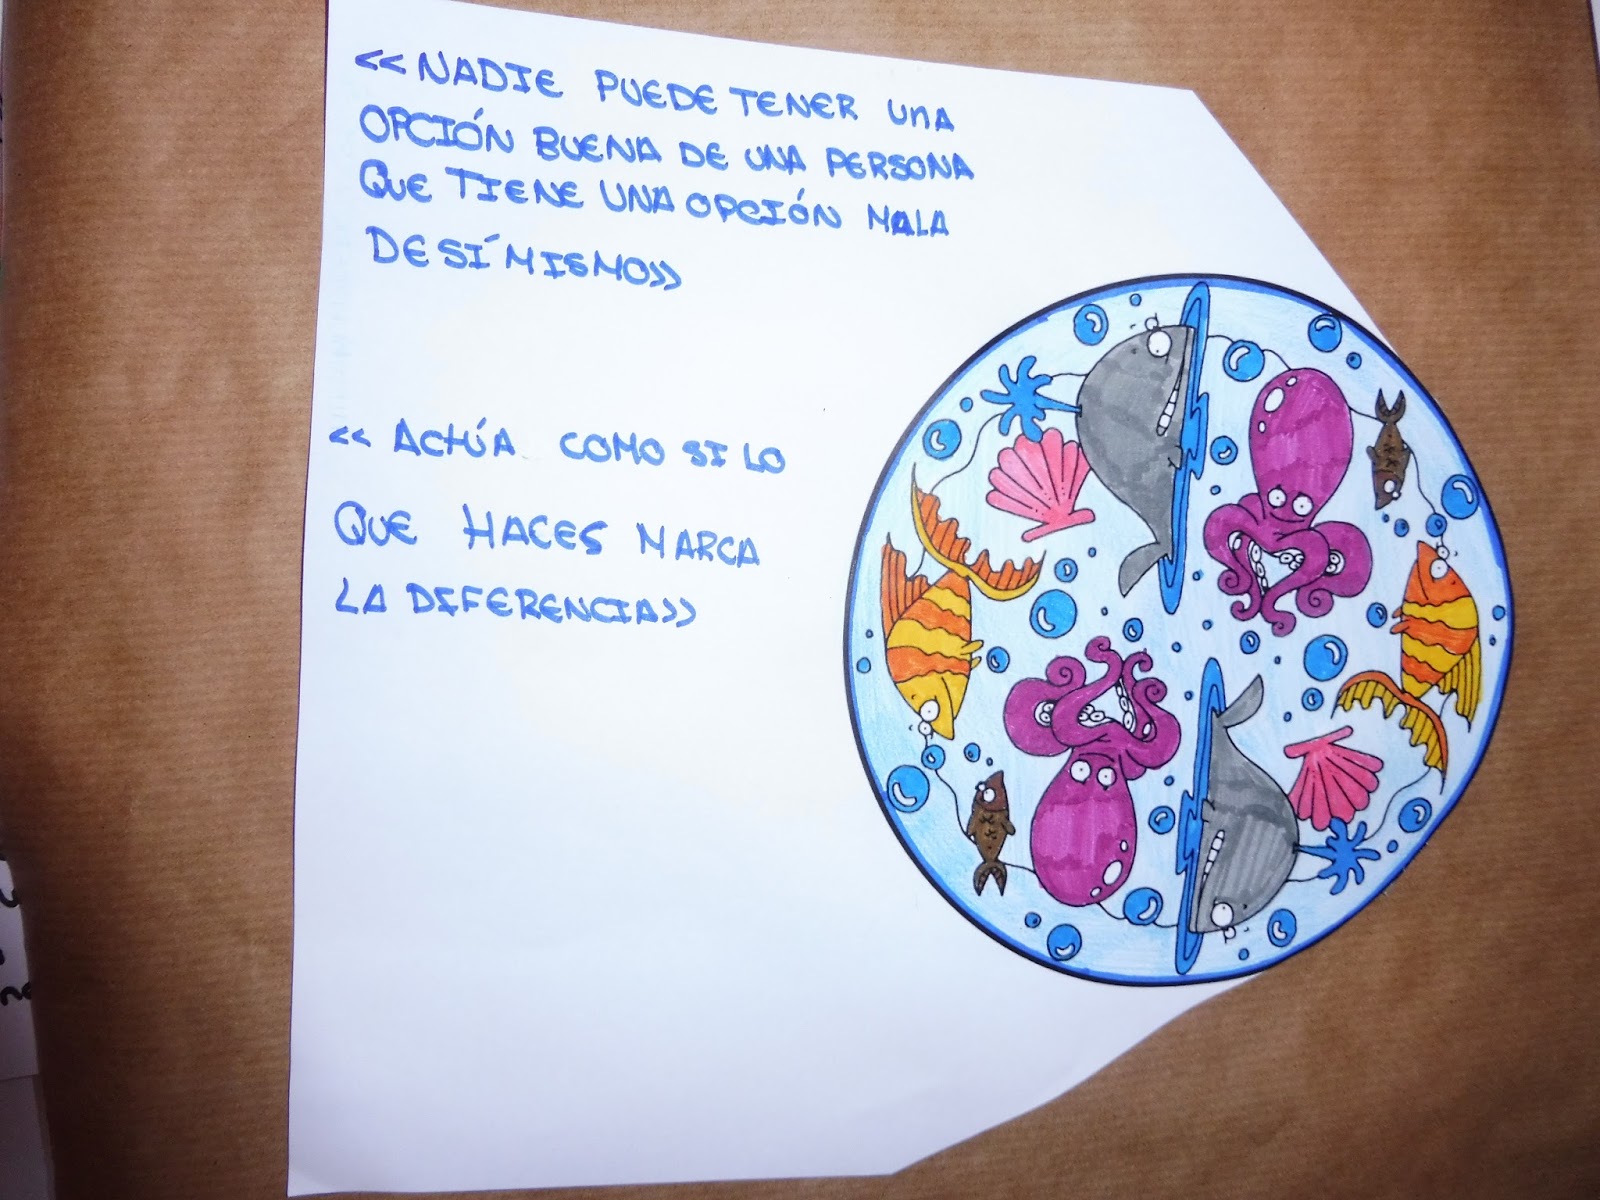 <<NADIE PUEDE TENER UNA
OPCIÓN BUENA DE UNA PERSONA
QUE TIENE UNA OPCIÓN MALA
DE SÍ MISMO>>
<< ACTÚA COMO SI LO
QUE HACES MARCA
LA DIFERENCIA>>